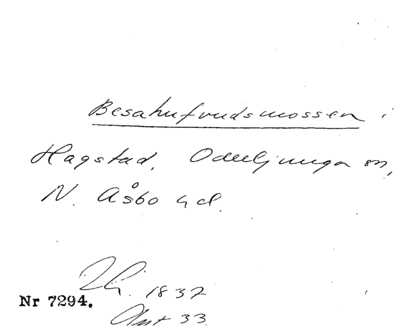 Besahufvudsmossen i
Hagstad, Oderljunga sn,
N. Åsbo hd.
1837
Nr 7294.
Akt 33